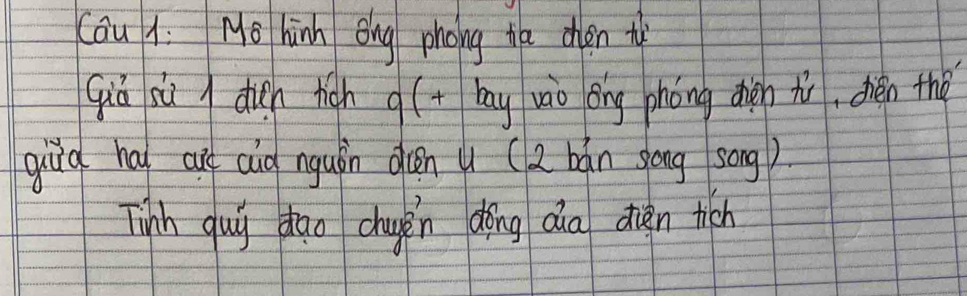 Câu 1: Mô hình ống phóng tia điện tử
Giả sử 1 điện tích q(+ bay vào ống phóng điện tử, điện thế
giữa hai cực của nguồn điện U (2 bản song song).
Tính quỹ đạo chuyển động của điện tích